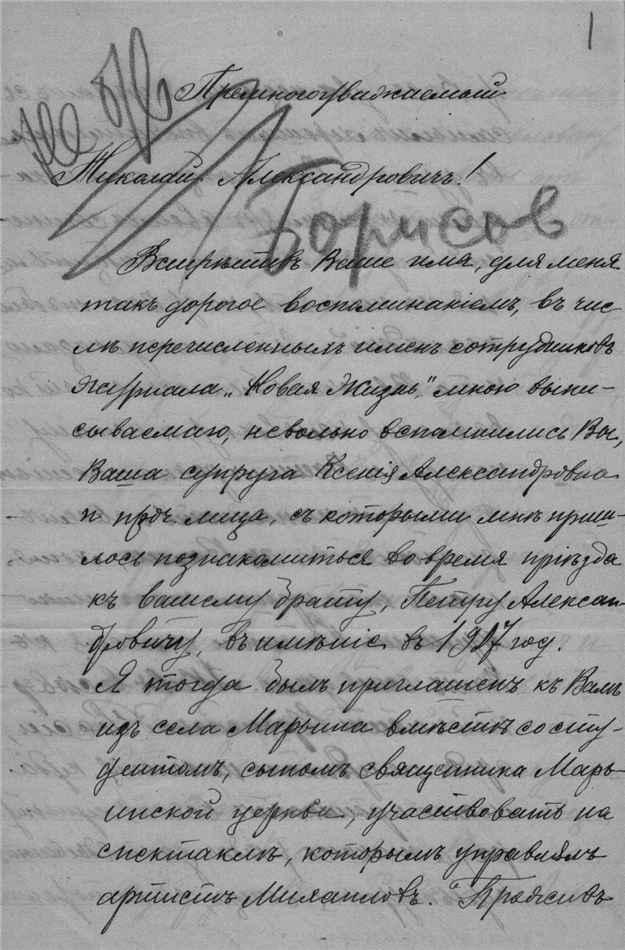 1
Премногоуважаемый
Николай Александровичъ!
Борисов
Встрѣтивъ Ваше имя, для меня
такъ дорогое воспоминаніемъ, въ чис-
лѣ перечисленныхъ именъ сотрудниковъ
журнала „Новая Жизнь," мною выпи-
сываемаго, невольно вспомнились Вы,
Ваша супруга Ксенія Александровна
и проч. лица, съ которыми мнѣ приш-
лось познакомиться во время пріѣзда
къ вашему брату, Петру Алексан-
дровичу, въ имѣніе въ 1907 год.
Я тогда былъ приглашенъ къ Вамъ
изъ села Марьина вмѣстѣ со сту-
дентомъ, сыномъ священника Марь-
инской церкви, участвовать на
спектаклѣ, которымъ управлялъ
артистъ Михаиловъ.